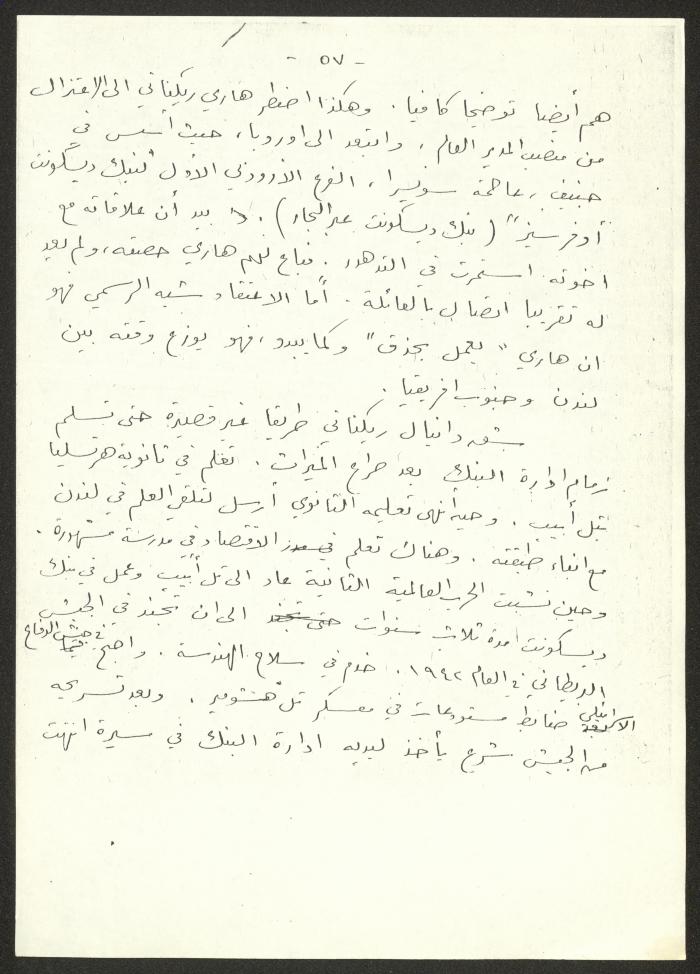 - ٥٧ -
هم أيضا توضيحا كافيا. وهكذا اضطر هاري ريكناتي الى الاعتزال
من منصب المدير العام، وابتعد الى اوروبا، حيث أسس في
جنيف، عاصمة سويسرا، الفرع الاوروبي الأول لبنك ديسكونت
"أوفرسيز" (بنك ديسكونت عبر البحار). بيد أن علاقاته مع
اخوته استمرت في التدهور. فباع لهم هاري حصته، ولم يعد
له تقريبا اتصال بالعائلة. أما الاعتقاد شبه الرسمي فهو
ان هاري "يعمل بحذق" وكما يبدو، فهو يوزع وقته بين
لندن وجنوب افريقيا.
شق دانيال ريكناتي طريقا غير قصيرة حتى تسلم
زمام ادارة البنك بعد صراع الميراث. تعلم في ثانوية هرتسليا
بتل أبيب. وحين أنهى تعليمه الثانوي أرسل لتلقي العلم في لندن
مع ابناء طبقته. وهناك تعلم الاقتصاد في مدرسة مشهورة.
وحين نشبت الحرب العالمية الثانية عاد الى تل أبيب وعمل في بنك
ديسكونت لمدة ثلاث سنوات حتى تجند الى ان تجند في الجيش
البريطاني في العام ١٩٤٢. خدم في سلاح الهندسة. واصبح في جيش الدفاع
الاسرائيلي ضابط مستودعات في معسكر تل هشومير. وبعد تسريحه
من الجيش شرع يأخذ لديه ادارة البنك في مسيرة انتهت